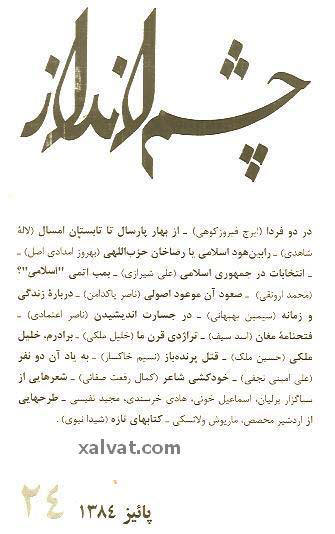 چشم‌انداز
در دو فردا (ایرج فیروزکوهی) ـ از بهار پارسال تا تابستان امسال (لالهٔ
شاهدی) ـ رابین‌هود اسلامی یا رضاخان حزب‌اللهی (بهروز امدادی اصل) ـ
ـ انتخابات در جمهوری اسلامی (علی شیرازی) ـ بمب اتمی "اسلامی"؟
(محمد ارونقی) ـ صعود آن موعود اصولی (ناصر پاکدامن) ـ دربارهٔ زندگی
و زمانه (سیمین بهبهانی) ـ در جسارت اندیشیدن (ناصر اعتمادی) ـ
فتحنامهٔ مغان (اسد سیف) ـ تراژدی قرن ما (خلیل ملکی) ـ برادرم، خلیل
ملکی (حسین ملک) ـ قتل پرنده‌باز (نسیم خاکسار) ـ به یاد آن دو نفر
(علی امینی نجفی) ـ خودکشی شاعر (کمال رفعت صفائی) ـ شعرهایی از
ساگزار برلیان، اسماعیل خوئی، هادی خرسندی، مجید نفیسی ـ طرحهایی
از اردشیر محصص، ماریوش ولانسکی ـ کتابهای تازه (شیدا نبوی).
xalvat.com
پائیز ۱۳۸۴
۲۴